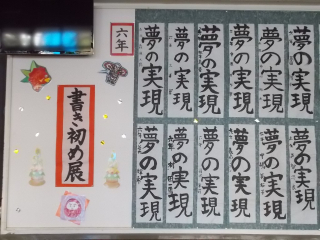 六年
書き初め展
夢の実現
夢の実現
夢の実現
夢の実現
夢の実現
夢の実現
夢の実現
夢の実現
夢の実現
夢の実現
夢の実現
夢の実現